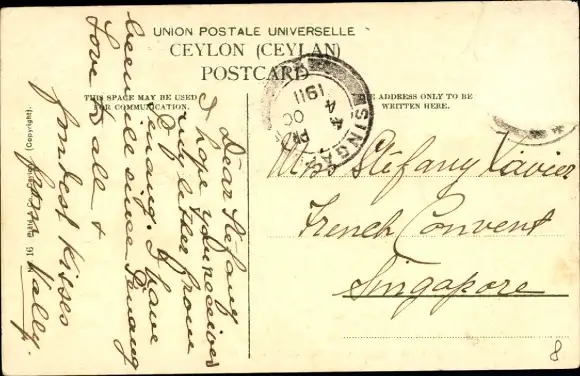 UNION POSTALE UNIVERSELLE
CEYLON (CEYLAN)
POSTCARD
THIS SPACE MAY BE USED
FOR COMMUNICATION.
THE ADDRESS ONLY TO BE
WRITTEN HERE.
SINGAP
PM
4 OC
1911
Dear Stefany
I hope you received
my letter from
Penang. I have
been ill since Penang
Love to all &
fondest kisses
from Wally.
Miss Stefany Xavier
French Convent
Singapore
16
(Copyright).
8